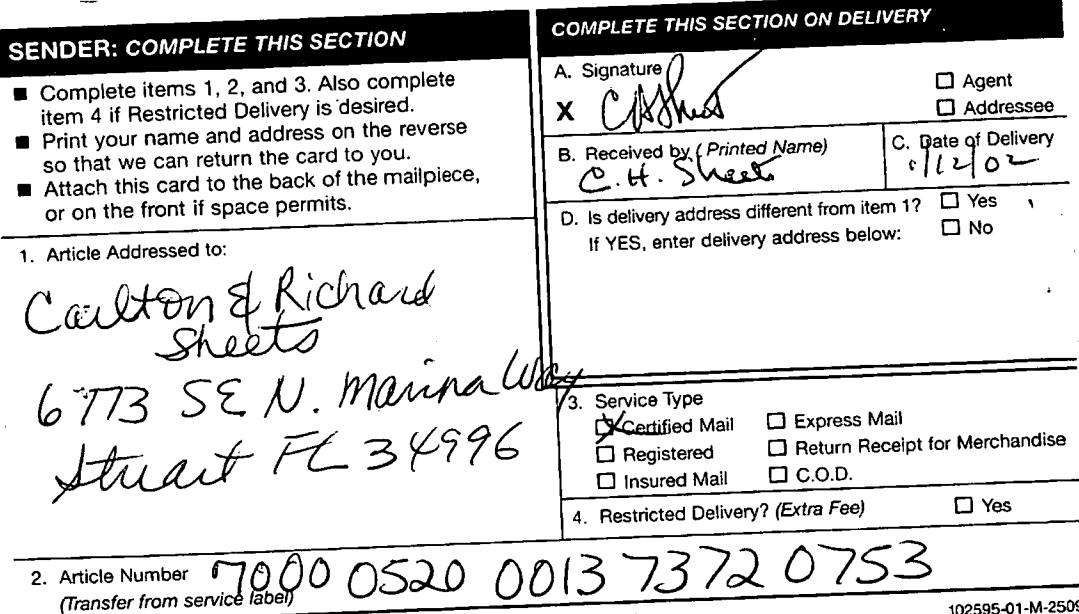 SENDER: COMPLETE THIS SECTION
■ Complete items 1, 2, and 3. Also complete
item 4 if Restricted Delivery is desired.
■ Print your name and address on the reverse
so that we can return the card to you.
■ Attach this card to the back of the mailpiece,
or on the front if space permits.
1. Article Addressed to:
Carlton & Richard
Sheets
6773 SE N. Marina Way
Stuart FL 34996
2. Article Number 7000 0520 0013 7372 0753
(Transfer from service label)
COMPLETE THIS SECTION ON DELIVERY
A. Signature
X
☐ Agent
☐ Addressee
B. Received by (Printed Name)
C. H. Sheets
C. Date of Delivery
1/12/02
D. Is delivery address different from item 1? ☐ Yes
If YES, enter delivery address below: ☐ No
3. Service Type
☒ Certified Mail ☐ Express Mail
☐ Registered ☐ Return Receipt for Merchandise
☐ Insured Mail ☐ C.O.D.
4. Restricted Delivery? (Extra Fee) ☐ Yes
102595-01-M-2509